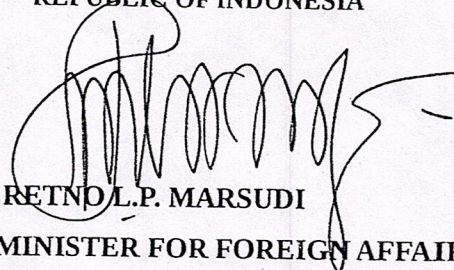 REPUBLIC OF INDONESIA
RETNO L.P. MARSUDI
MINISTER FOR FOREIGN AFFAI